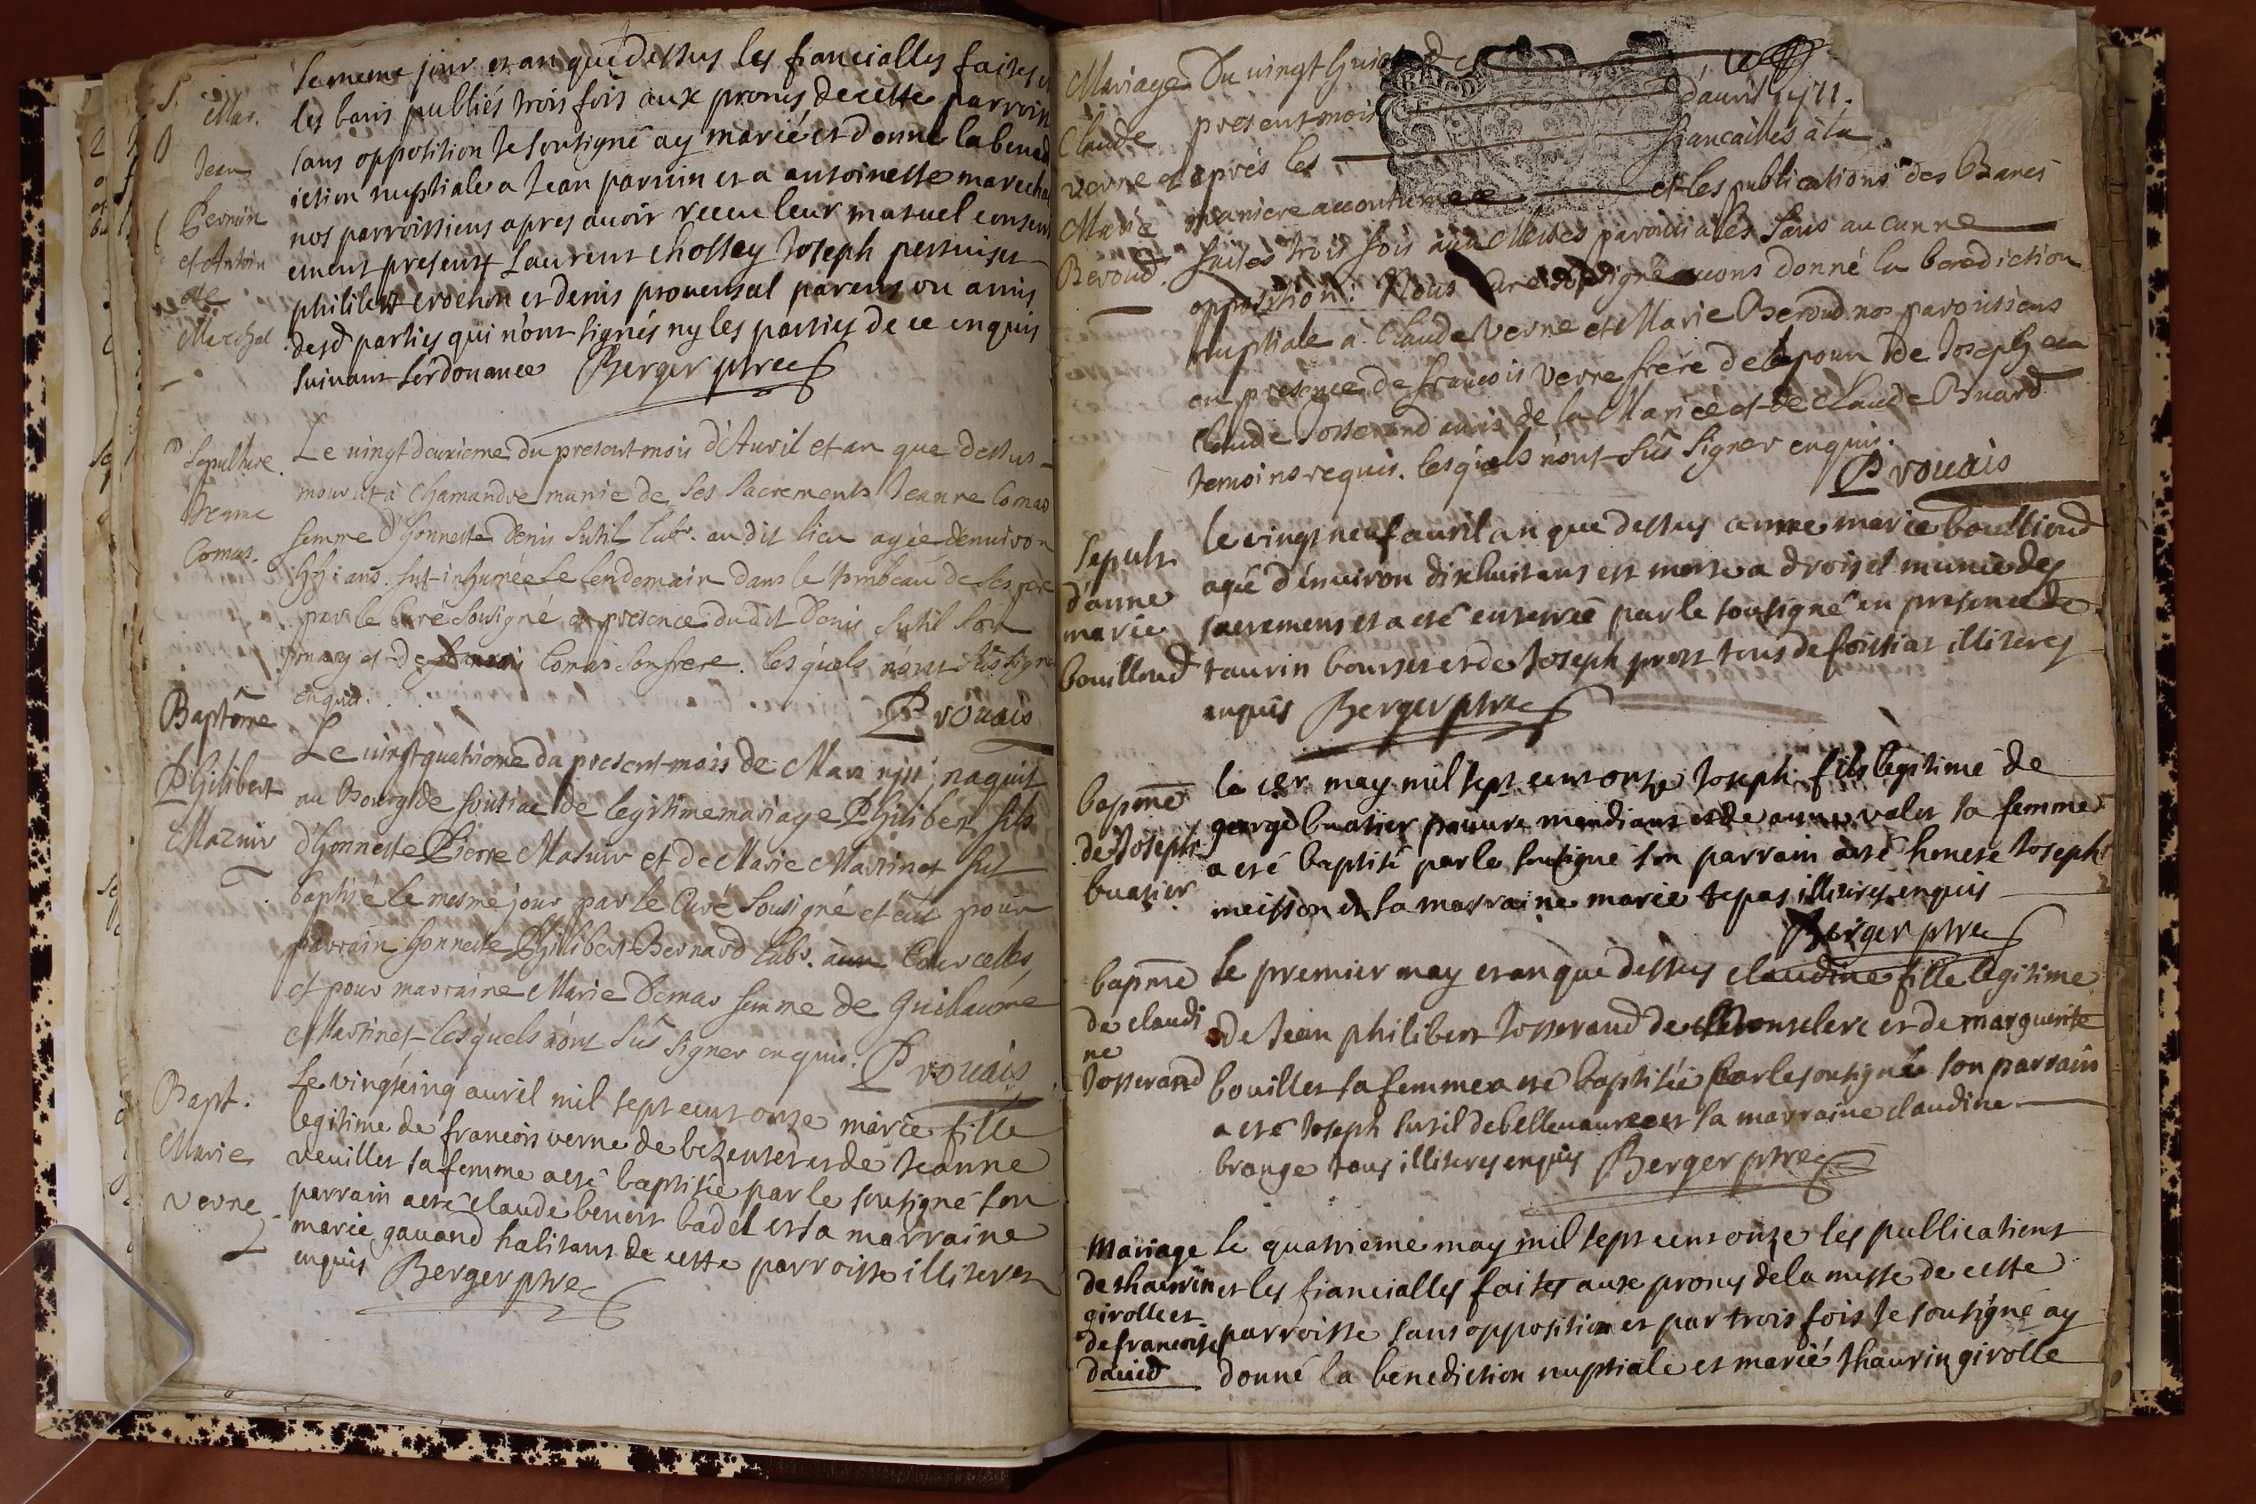 Mar.
Jean
Perruin
et Antoin
ete
Marechal
le meme jour et an que dessus les fiancialles faites et
les bans publiés trois fois aux prones de cette parroisse
sans opposition Je soussigné ay marié et donné la bened
iction nuptiale a Jean parruin et a antoinette marechal
nos parroissiens apres avoir receu leur mutuel consent
ement present Laurent chossey Joseph
philibert crochon et denis provensal parens ou amis
desd parties qui n'ont signés ny les parties de ce enquis
suivant l'ordonance Berger ptre
Sepulture
Jeanne
Comas.
Le vingt deuxieme du present mois d'Avril et an que dessus
mourut à Chamandre munie de ses Sacrements Jeanne Comas
femme d'honneste Denis Sutil Labr. au dit lieu agée d'environ
ans. fut inhumée le lendemain dans le tombeau de ses
par le Curé sousigné en presence du dit Denis Sutil son
mary et de Comas son frere. lesquels n'ont sûs signer
enquis.
P vouais
Baptême
Philibert
Maznir
Le vingt quatrieme du present mois de naquit
au Bourg de foissiac de legitime mariage Philibert fils
d'honneste Pierre Maznir et de Marie Martinet fut
baptisé le mesme jour par le Curé Sousigné et eut pour
parrain honneste Philibert Bernard Labr. aux Courcelles
et pour marraine Marie Demas femme de Guillaume
Martinet lesquels n'ont sûs signer enquis.
P vouais
Bapt.
Marie
verne
Le vingtcinq avril mil sept cent onze marie fille
legitime de francois verne de bezentet et de Jeanne
veuillet sa femme a esté baptisée par le soussigné son
parrain a esté claude benoit badel et sa marraine
marie gavand habitans de cette parroisse illiteres
enquis Berger ptre
Mariage
Claude
verne et
Marie
Beroud.
Du vingt huict de
present mois d'avril 1711.
après les fiancailles à la
maniere accoutumee et les publications des Bancs
faites trois fois aux Messes paroissiales sans aucunne
opposition. Nous Curé soussigné avons donné la benediction
nuptiale à Claude Verne et Marie Beroud nos paroissiens
en presence de francois Verne frère de lepoux de Joseph et
Claude Josserand amis de la Mariée et de Claude Buard
temoins requis. lesquels n'ont sûs signer enquis.
P vouais
sepult
d'anne
marie
bouilloud
le vingt neuf avril an que dessus anne marie bouilloud
agée d'environ dixhuit ans est morte a droiset munie des
sacremens et a esté enterrée par le sousigné en presence de
taurin bourset et de Joseph prost tous de foissiat illiteres
enquis Berger ptre
bapme
de Joseph
buatier
le 1er may mil sept cent onze Joseph fils legitime de
george buatier pauvre mendiant et de anne valet sa femme
a esté baptisé par le sousigné son parrain a esté honeste Joseph
meisson et sa marraine marie tepas illiteres enquis
Berger ptre
bapme
de claudi
ne
Josserand
le premier may et an que dessus claudine fille legitime
de Jean philibert Josserand de Montclerc et de marguerite
bouillet sa femme a esté baptisée par le sousigné son parrain
a esté Joseph sutil de bellevavre et sa marraine claudine
brange tous illiteres enquis Berger ptre
Mariage
de thaurin
girolle et
de francoise
david
le quatrieme may mil sept cent onze les publications
et les fiancialles faites aux prones de la messe de cette
parroisse sans opposition et par trois fois Je sousigné ay
donné la benediction nuptiale et marié thaurin girolle